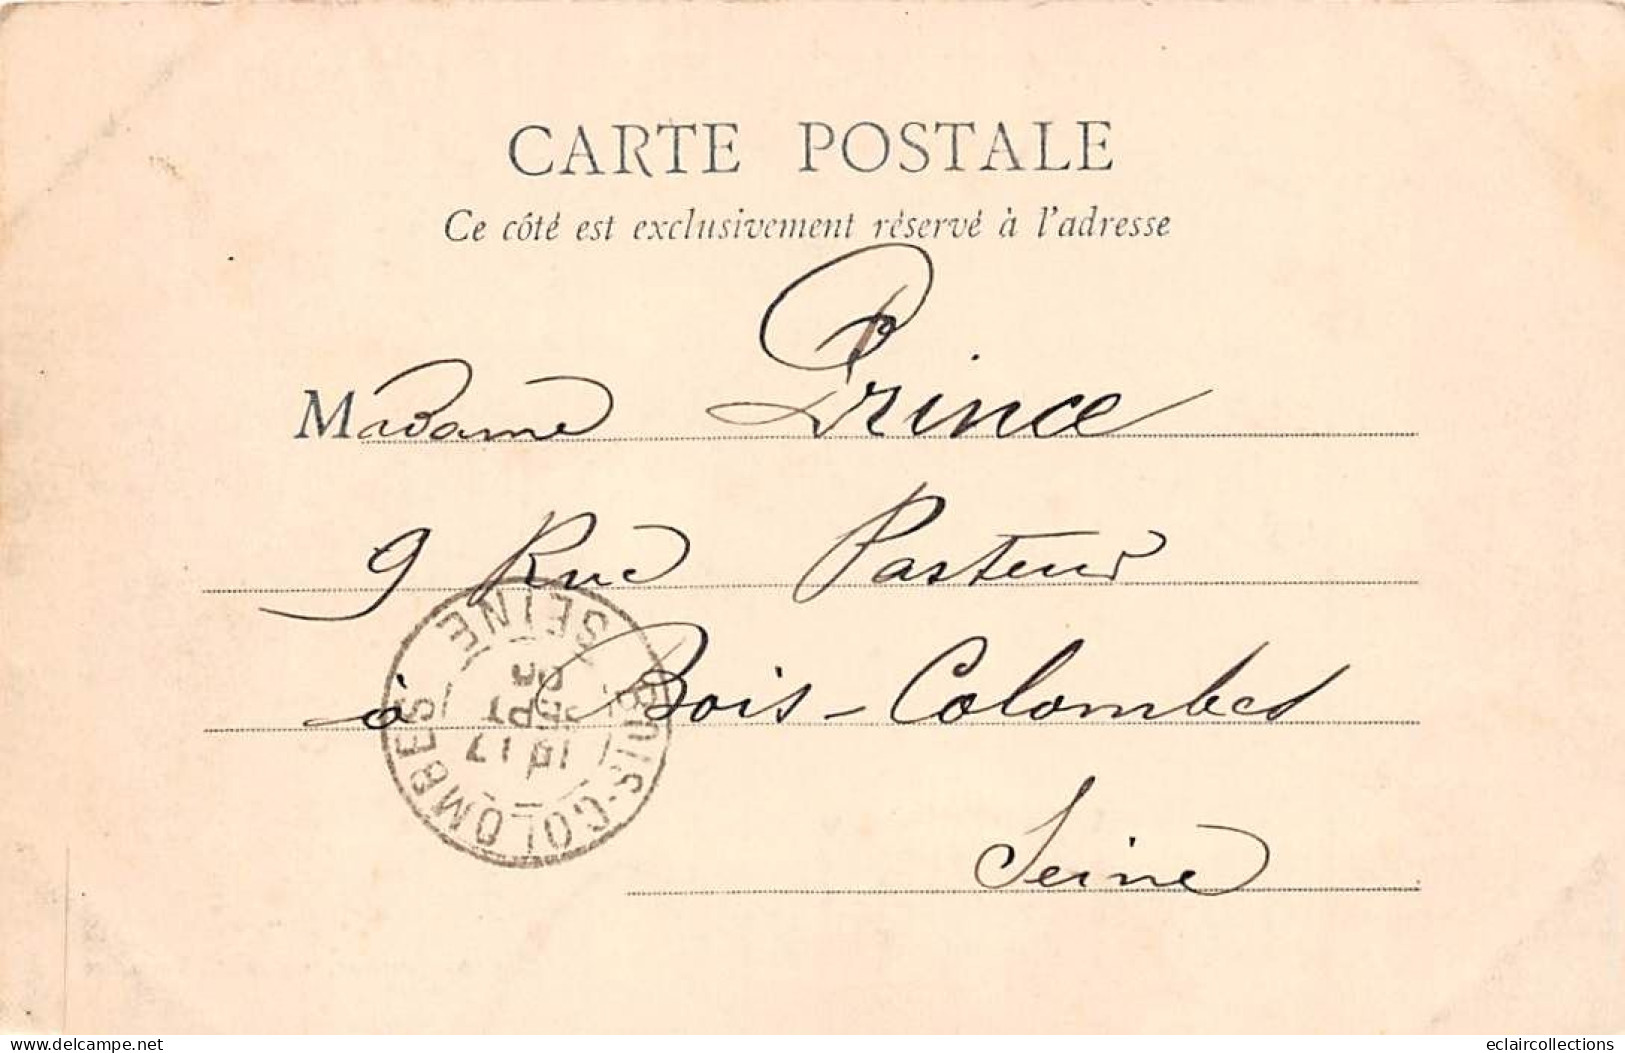 CARTE POSTALE
Ce côté est exclusivement réservé à l'adresse
Madame Prince
9 Rue Pasteur
à Bois-Colombes
Seine
BOIS-COLOMBES SEINE
17
SEPT
delcampe.net
eclaircollections